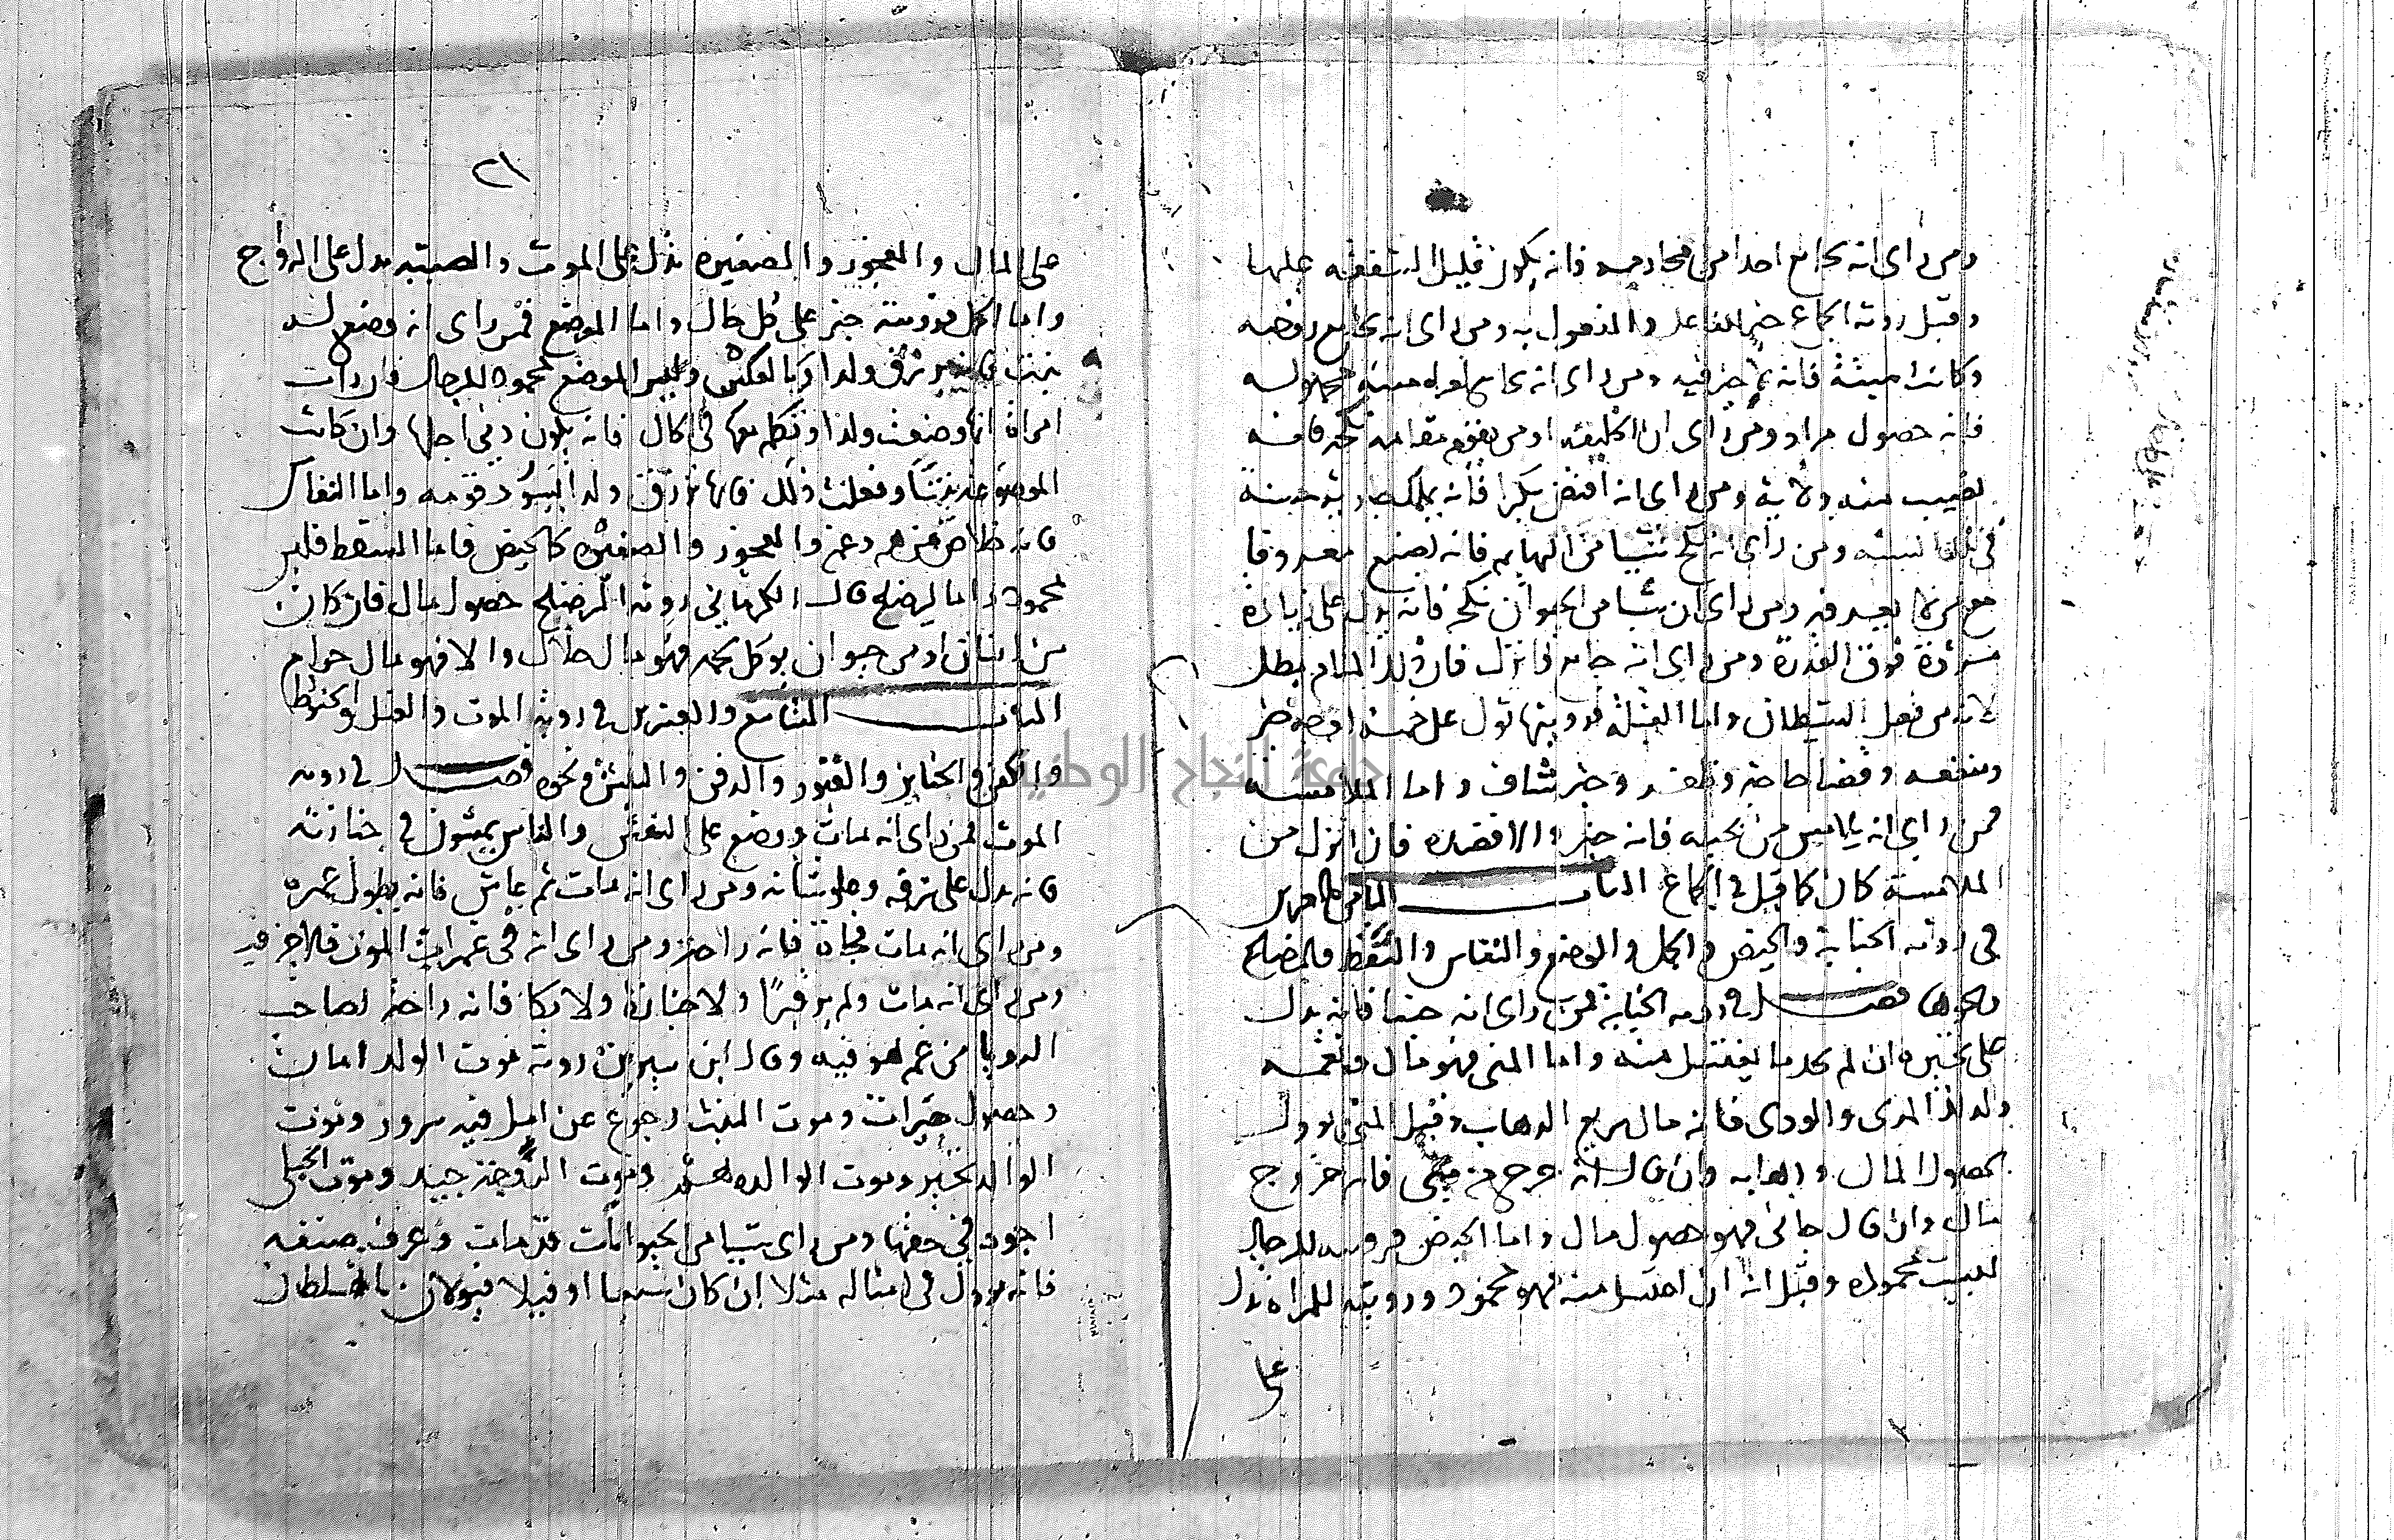 ومن راى انه يجامع احدا من محارمه فانه يكون قليل الشفقه عليها
وقيل روية الجماع خير للفاعل والمفعول به ومن راى انه يجامع زوجته
وكانت ميتة فانه لا خير فيه ومن راى انه يجامع امراه ميته مجهوله
فانه حصول مراد ومن راى ان الخليفه او من يقوم مقامه نكحه فانه
يصيب منه ولاية ومن راى انه افتض بكرا فانه يملك جارية حسنة
في تلك السنه ومن راى انه نكح شيا من البهايم فانه يصنع معروفا
مع من لا يعرفه ومن راى ان شيا من الحيوان نكحه فانه يدل على زيادة
فوق القدرة ومن راى انه جامع فانزل فان ذلك المنام بطل
لانه من فعل الشيطان واما القبلة فرويتها تول على خمسة اوجه خير
ومنفعه وقضا حاجه وظفر وخبر شاف واما الملامسه
فمن راى انه يلامس من يحبه فانه خير والا فضده فان انزل من
الملامسة كان كما قيل في الجماع الباب الثامن والعشرين
في روية الجنابة والحيض والحمل والوضع والنفاس والسقط والرضاع
ونحوها فصل في روية الجنابة فمن راى انه جنبا فانه يدل
على تحير وان لم يجد ما يغتسل منه واما المنى فهو مال ونعمه
ولد لذ المذى والودى فانه مال سريع الذهاب وقيل المنى يوول
بحصول المال وذهابه وان قال انه خرج مني فانه خروج
مال وان قال جانى فهو حصول مال واما الحيض فرويته للرجال
ليست محموده وقيل انه ان اغتسل منه فهو محمود ورويته للمراه تدل
على
٢١
على المال والعجوز والصغيره تدل على الموت والصبيه يدل على الزواج
واما الحمل فرويته خير على كل حال واما الوضع فمن راى انه وضع له
بنت فانه يرزق ولدا وبالعكس وليس الوضع محمود للرجال وان رات
امراة انها وضعت ولدا وتكلم معها في الحال فانه يكون دنى اجلها وان كانت
الموضوعه بنتا وفعلت ذلك فانها ترزق ولدا يسود قومه واما النفاس
فانه خلاص من هم وغم والعجوز والصغيره كالحيض واما السقط فليس
محمود واما الرضاع قال الكرماني روية الرضاع حصول مال فان كان
من انسان او من حيوان يوكل لحمه فهو مال حلال والا فهو مال حرام
الباب التاسع والعشرين في روية الموت والغسل والحنوط
والكفن والجنايز والقبور والدفن والنبش ونحوه فصل في روية
الموت فمن راى انه مات ووضع على النعش والناس يمشون في جنازته
فانه يدل على ترقه وعلو شانه ومن راى انه مات ثم عاش فانه يطول عمره
ومن راى انه مات فجاة فانه راحه ومن راى انه في غمرات الموت فلا خير فيه
ومن راى انه مات ولم ير قبرًا ولا جنازة ولا بكا فانه راحه لصاحب
الرويا من غم هو فيه وقال ابن سيرين روية موت الولد امان
وحصول خيرات وموت البنت رجوع عن امل فيه سرور وموت
الوالد تحير وموت الوالده وموت الزوجة جيد وموت الحبلى
اجود في حقها ومن راى شيا من الحيوانات قد مات وعرف صنفه
فانه يوول في امثاله مثلا ان كان سبعا او فيلا فيولان بالسلطان
جامعة النجاح الوطنية